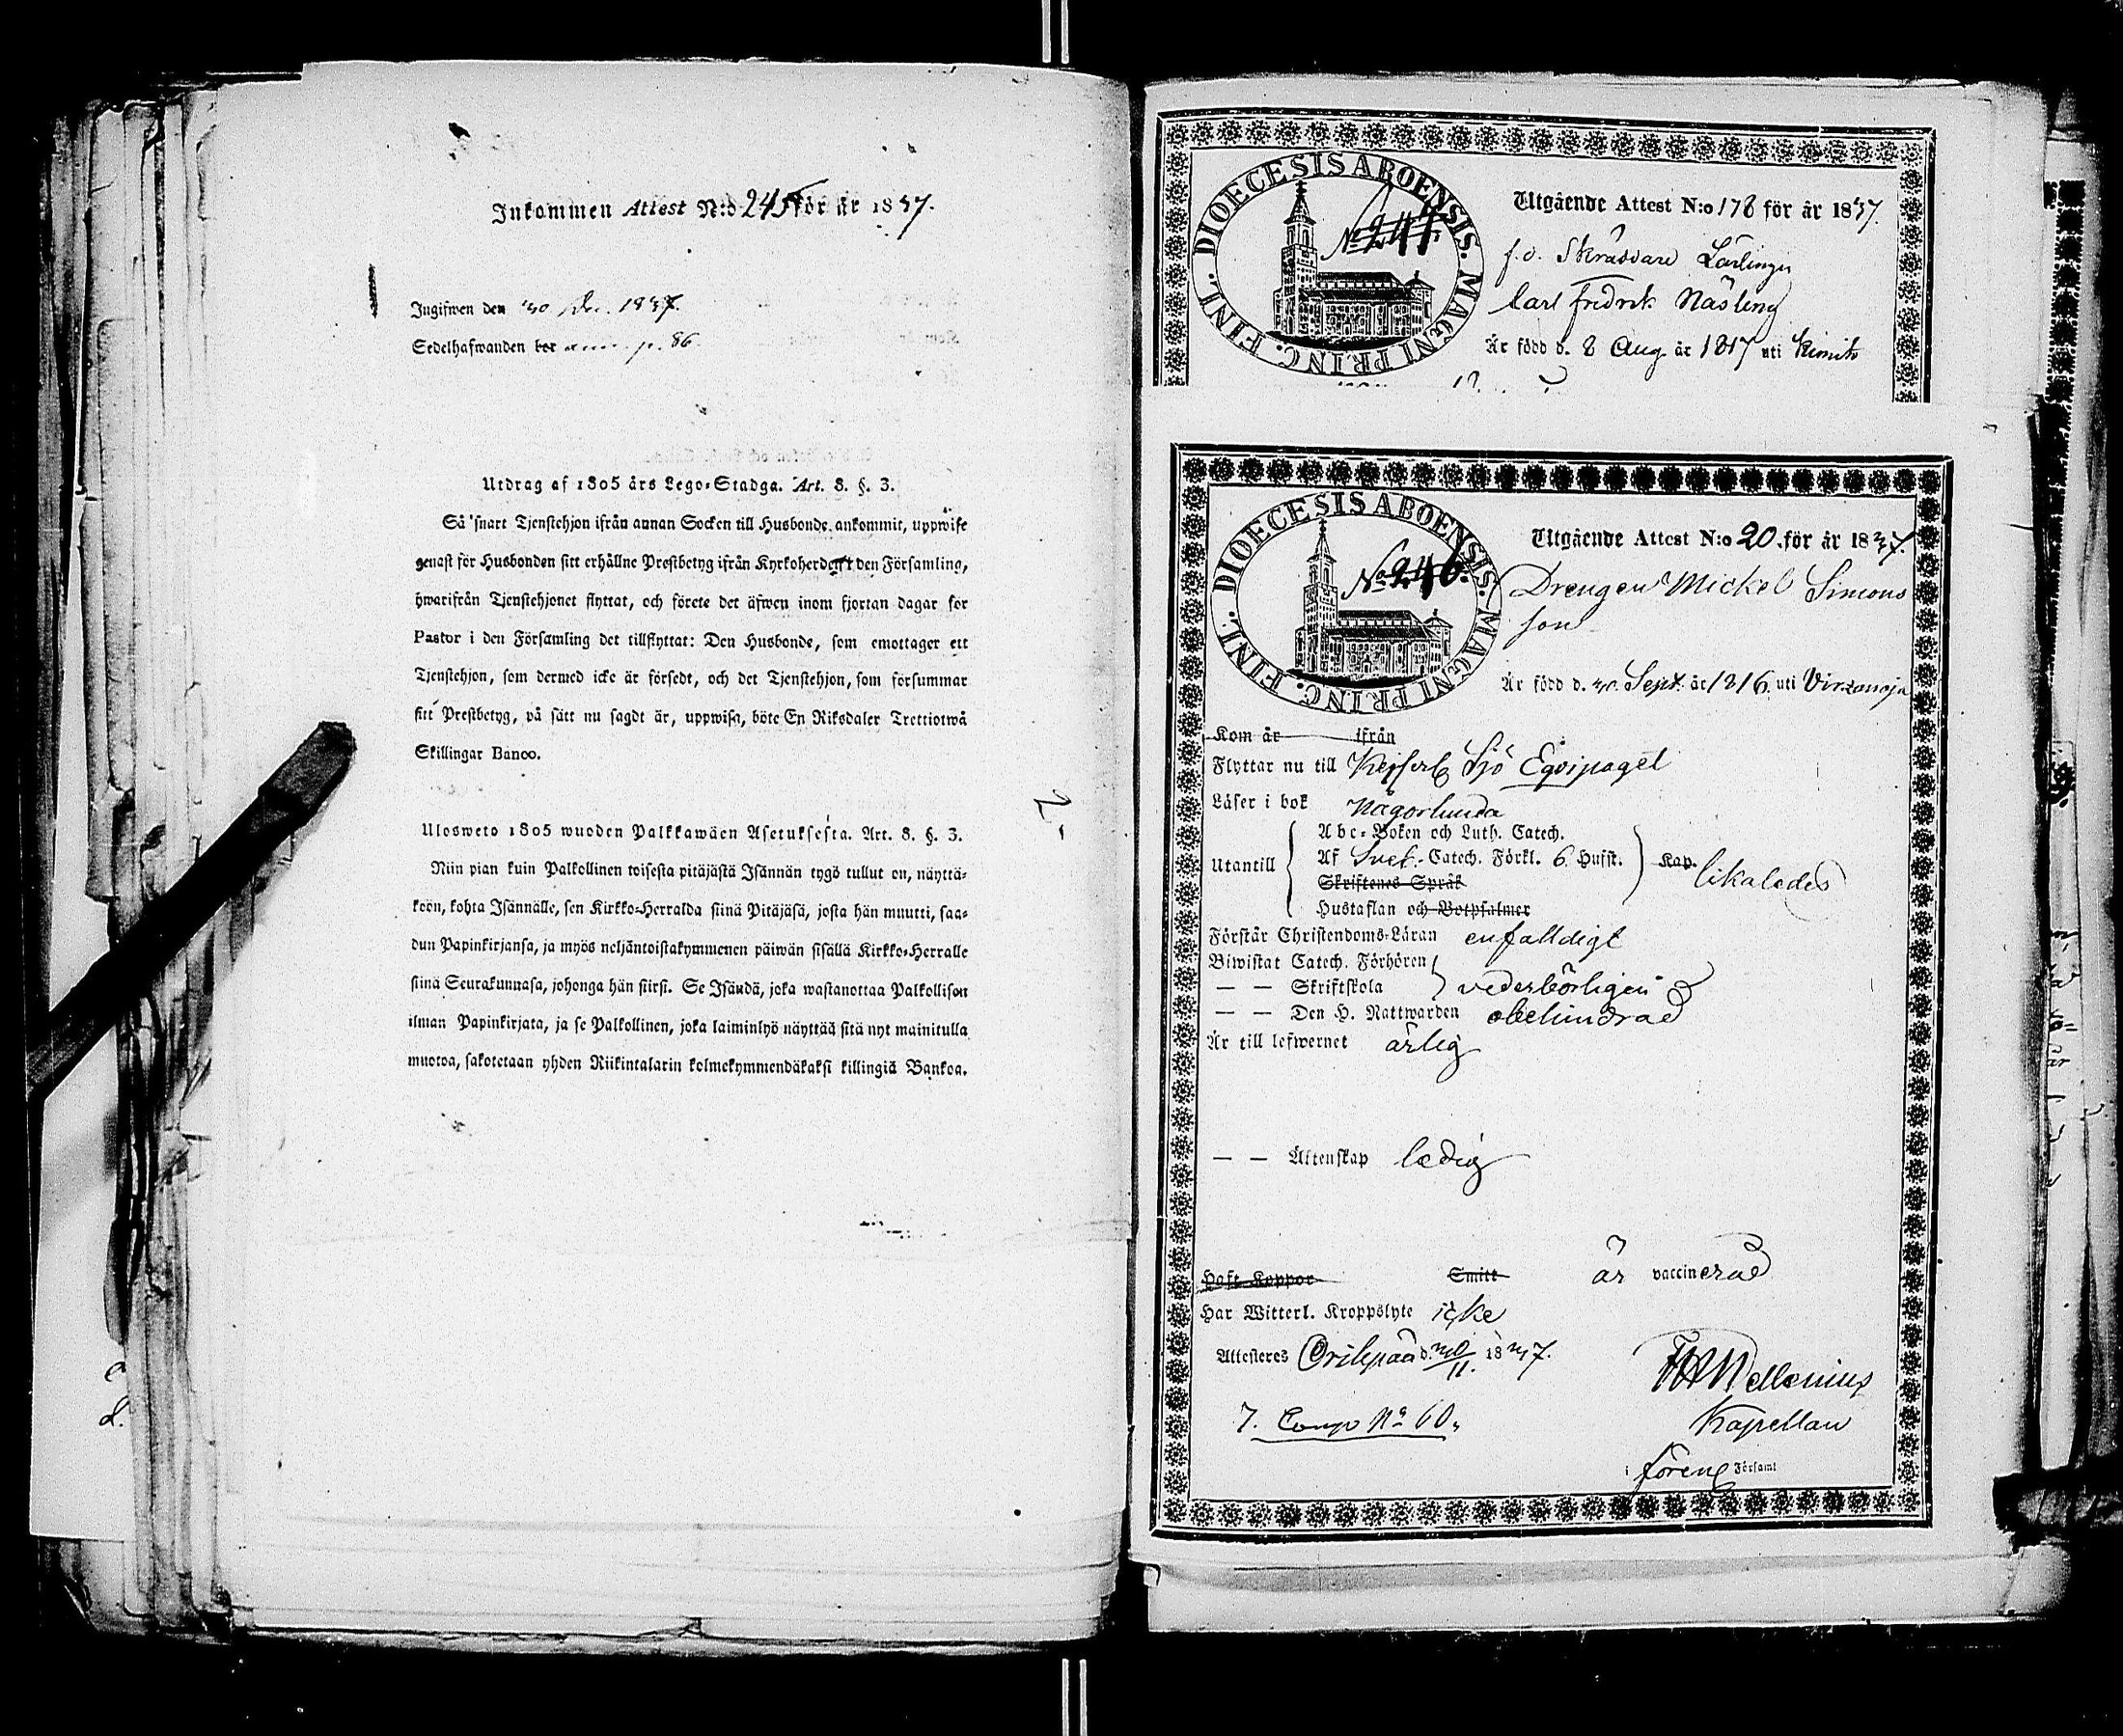 Inkommen Attest N:o 245 för år 1837.
Ingifwen den 30 Dec. 1837.
Sedelhafwanden bor p. 86.
Utdrag af 1805 års Lego-Stadga. Art. 8. §. 3.
Så snart Tjenstehjon ifrån annan Socken till Husbonde ankommit, uppwise
genast för Husbonden sitt erhållne Prestbetyg ifrån Kyrkoherden i den Församling,
hwarifrån Tjenstehjonet flyttat, och förete det äfwen inom fjortan dagar för
Pastor i den Församling det tillflyttat: Den Husbonde, som emottager ett
Tjenstehjon, som dermed icke är försedt, och det Tjenstehjon, som försummar
sitt Prestbetyg, på sätt nu sagdt är, uppwisa, böte En Riksdaler Trettiotwå
Skillingar Banco.
Ulosweto 1805 wuoden Palkkawäen Asetuksesta. Art. 8. §. 3.
Niin pian kuin Palkollinen toisesta pitäjästä Isännän tygö tullut on, näyttä-
köön, kohta Isännälle, sen Kirkko-Herralda siinä Pitäjäsä, josta hän muutti, saa-
dun Papinkirjansa, ja myös neljäntoistakymmenen päiwän sisällä Kirkko-Herralle
siinä Seurakunnasa, johonga hän siirsi. Se Isändä, joka wastanottaa Palkollisen
ilman Papinkirjata, ja se Palkollinen, joka laiminlyö näyttää sitä nyt mainitulla
muotoa, sakotetaan yhden Riikintalarin kolmekymmendäkaksi killingiä Bankoa.
2-
DIOECESIS ABOENSIS. MAGNI PRINC. FINL.
No 247.
Utgående Attest N:o 178 för år 1837.
f.d. Skräddare Lärlingen
Carl Fredrik Näsling
Är född d. 8 Aug. år 1817 uti Kimito
DIOECESIS ABOENSIS. MAGNI PRINC. FINL.
No 246.
Utgående Attest N:o 20. för år 1837.
Drengen Mickel Simons
son
Är född d. 30 Sept. år 1816. uti
Kom år ifrån
Flyttar nu till Kejserl Sjö Eqvipaget
Läser i bok någorlunda
Utantill
Abc-Boken och Luth. Catech.
Af Sveb. Catech. Förkl. 6 Hufst.
Skriftenes Språk
Hustaflan och Botpsalmer
Kap. likaledes
Förstår Christendoms-Läran enfalldigt
Biwistat Catech. Förhören
— — Skriftskola vederbörligen
— — Den H. Nattwarden obehindrad
Är till lefwernet ärlig
— — Äktenskap ledig
Haft Koppor Smitt är vaccinerad
Har Witterl. Kroppslyte icke
Attesteres Oripää d. 30/11. 1837.
Mellenius
7. Comp No 60.
Kapellan
i Församl